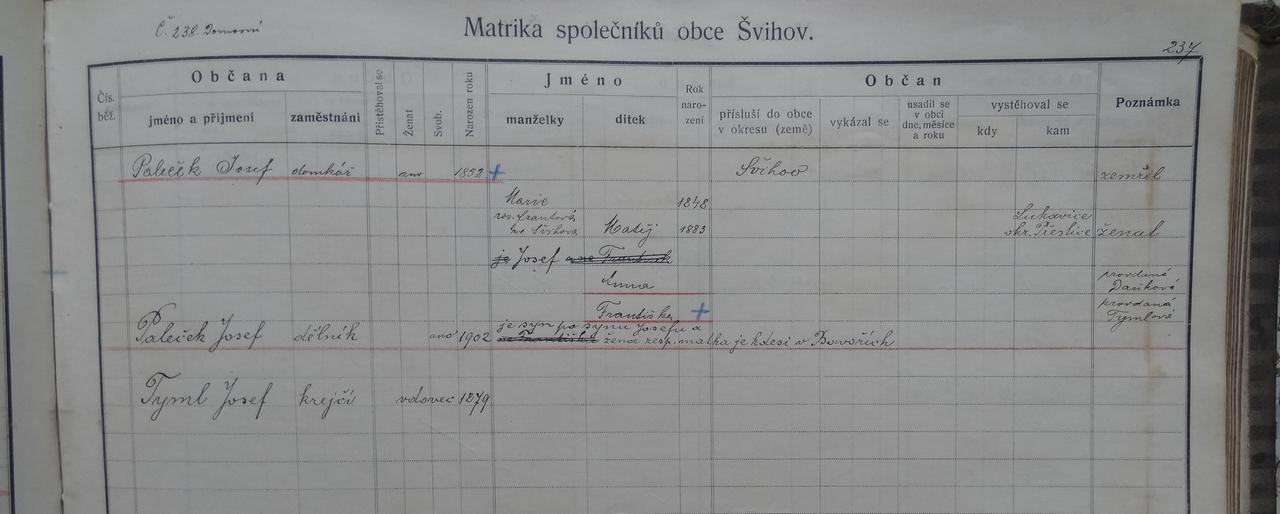 Č. 238. Domovní
Matrika společníků obce Švihov.
237
Čís. běž.
Občana
jméno a přijmení
zaměstnání
Přistěhoval se
Ženat
Svob.
Narozen roku
Jméno
manželky
dítek
Rok naro- zení
Občan
přísluší do obce v okresu (země)
vykázal se
usadil se v obci dne, měsíce a roku
vystěhoval se
kdy
kam
Poznámka
Paleček Josef domkář ano 1852 + Švihov zemřel
Marie 1848
ze Švihova Matěj 1883 Lukavice okr. Přeštice ženat
je Josef a ne František
Anna provdaná Daňková
Františka + provdaná Tymlová
je syn po synu Josefu a
Paleček Josef dělník ano 1902 ne Františka žena resp. matka je kdesi v Bavořích
Tyml Josef krejčí vdovec 1879